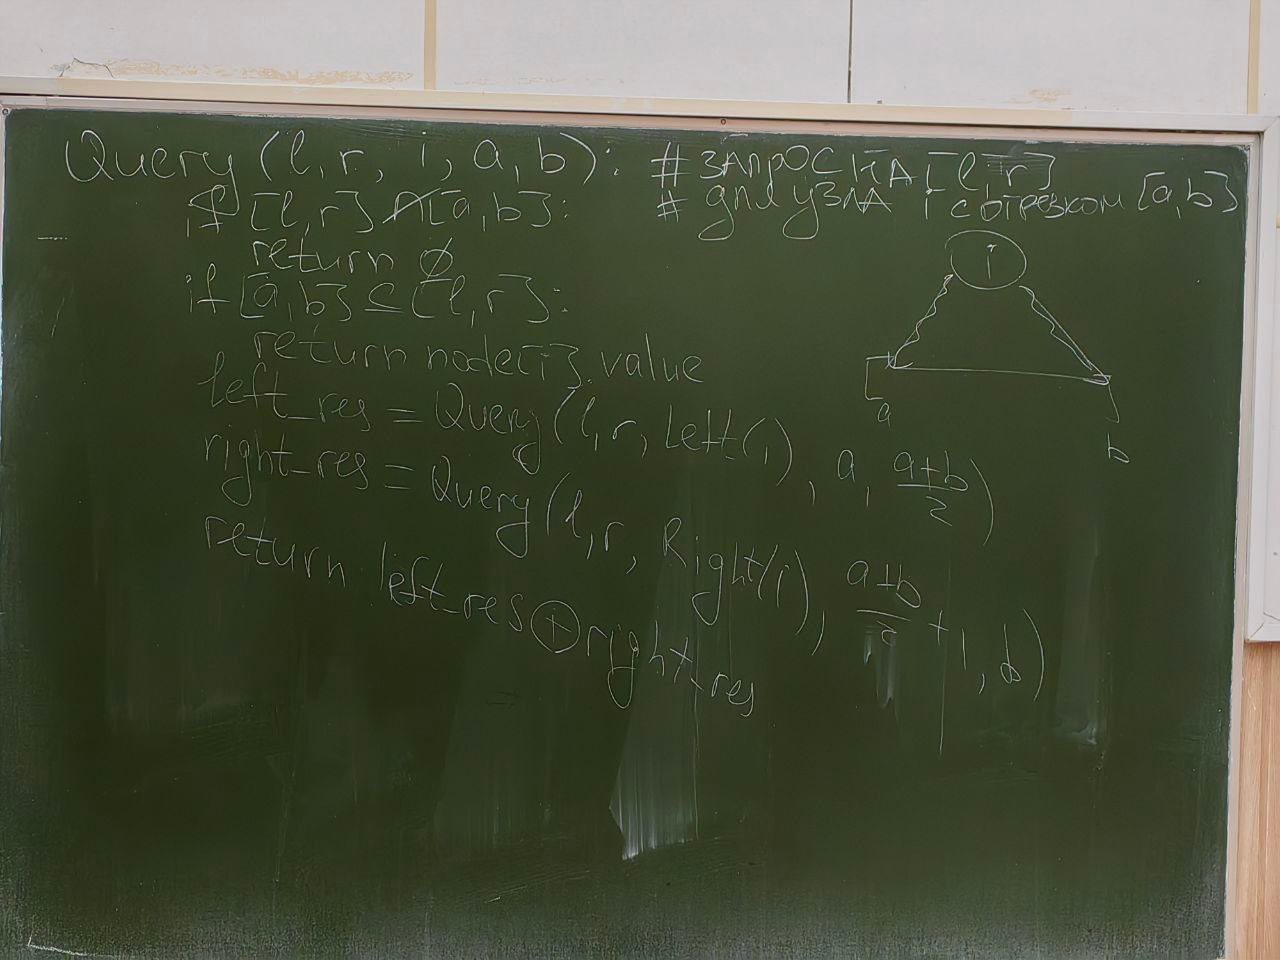 Query (l, r, i, a, b): # ЗАПРОС НА [l, r]
# для узла i с отрезком [a, b]
if [l, r] ∩̸ [a, b]:
return ∅
if [a, b] ⊆ [l, r]:
return node[i].value
left_res = Query (l, r, Left(i), a, \frac{a+b}{2})
right_res = Query (l, r, Right(i), \frac{a+b}{2} + 1, b)
return left_res ⊕ right_res
i
a
b